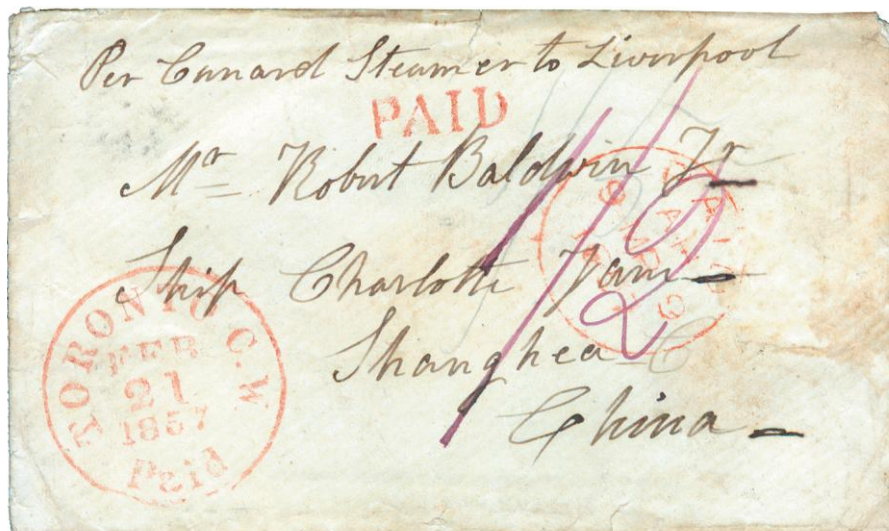 Per Cunard Steamer to Liverpool
PAID
Mr Robert Baldwin Jr
Ship Charlotte Jane
Shanghea
China
TORONTO C.W
FEB
21
1857
Paid
1/2